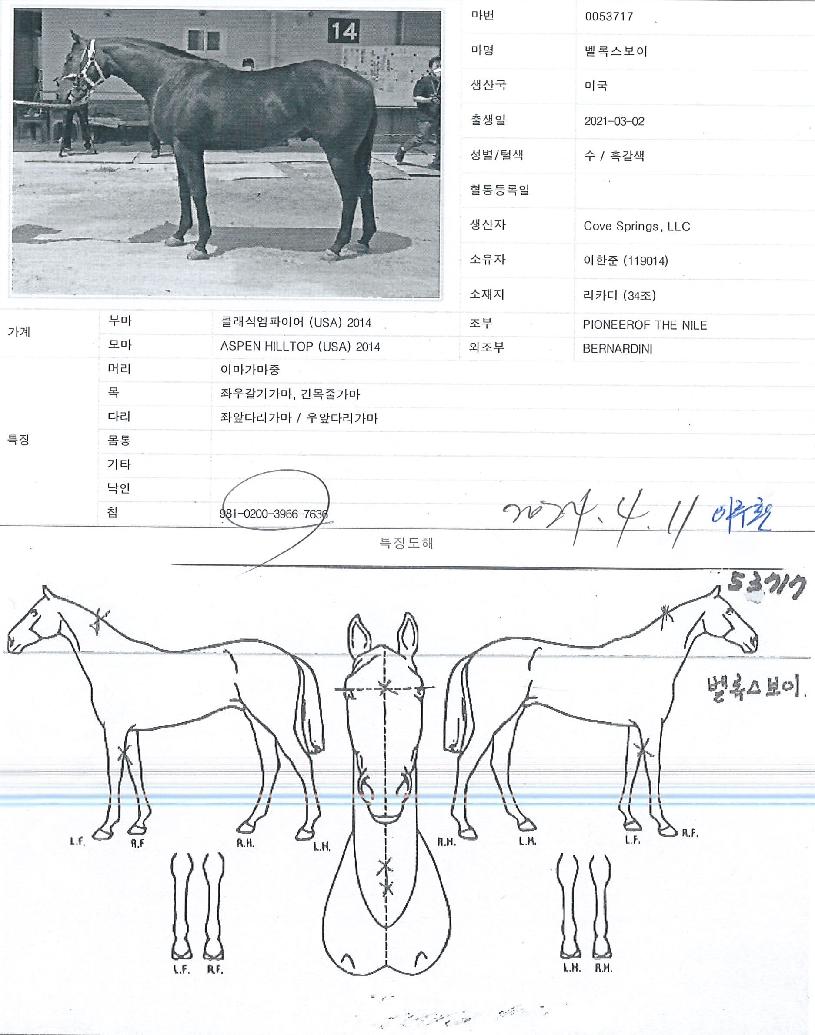 14
마번 0053717
마명 벨록스보이
생산국 미국
출생일 2021-03-02
성별/털색 수 / 흑갈색
혈통등록일
생산자 Cove Springs, LLC
소유자 이한준 (119014)
소재지 리카디 (34조)
가계
부마 클래식엠파이어 (USA) 2014 조부 PIONEEROF THE NILE
모마 ASPEN HILLTOP (USA) 2014 외조부 BERNARDINI
특징
머리 이마가마중
목 좌우갈기가마, 긴목줄가마
다리 좌앞다리가마 / 우앞다리가마
몸통
기타
낙인
칩 981-0200-3966 7636
2024.4.11
특징도해
53717
벨록스보이.
L.F. R.F R.H. L.H. R.H. L.H. L.F. R.F.
L.F. R.F. L.H. R.H.